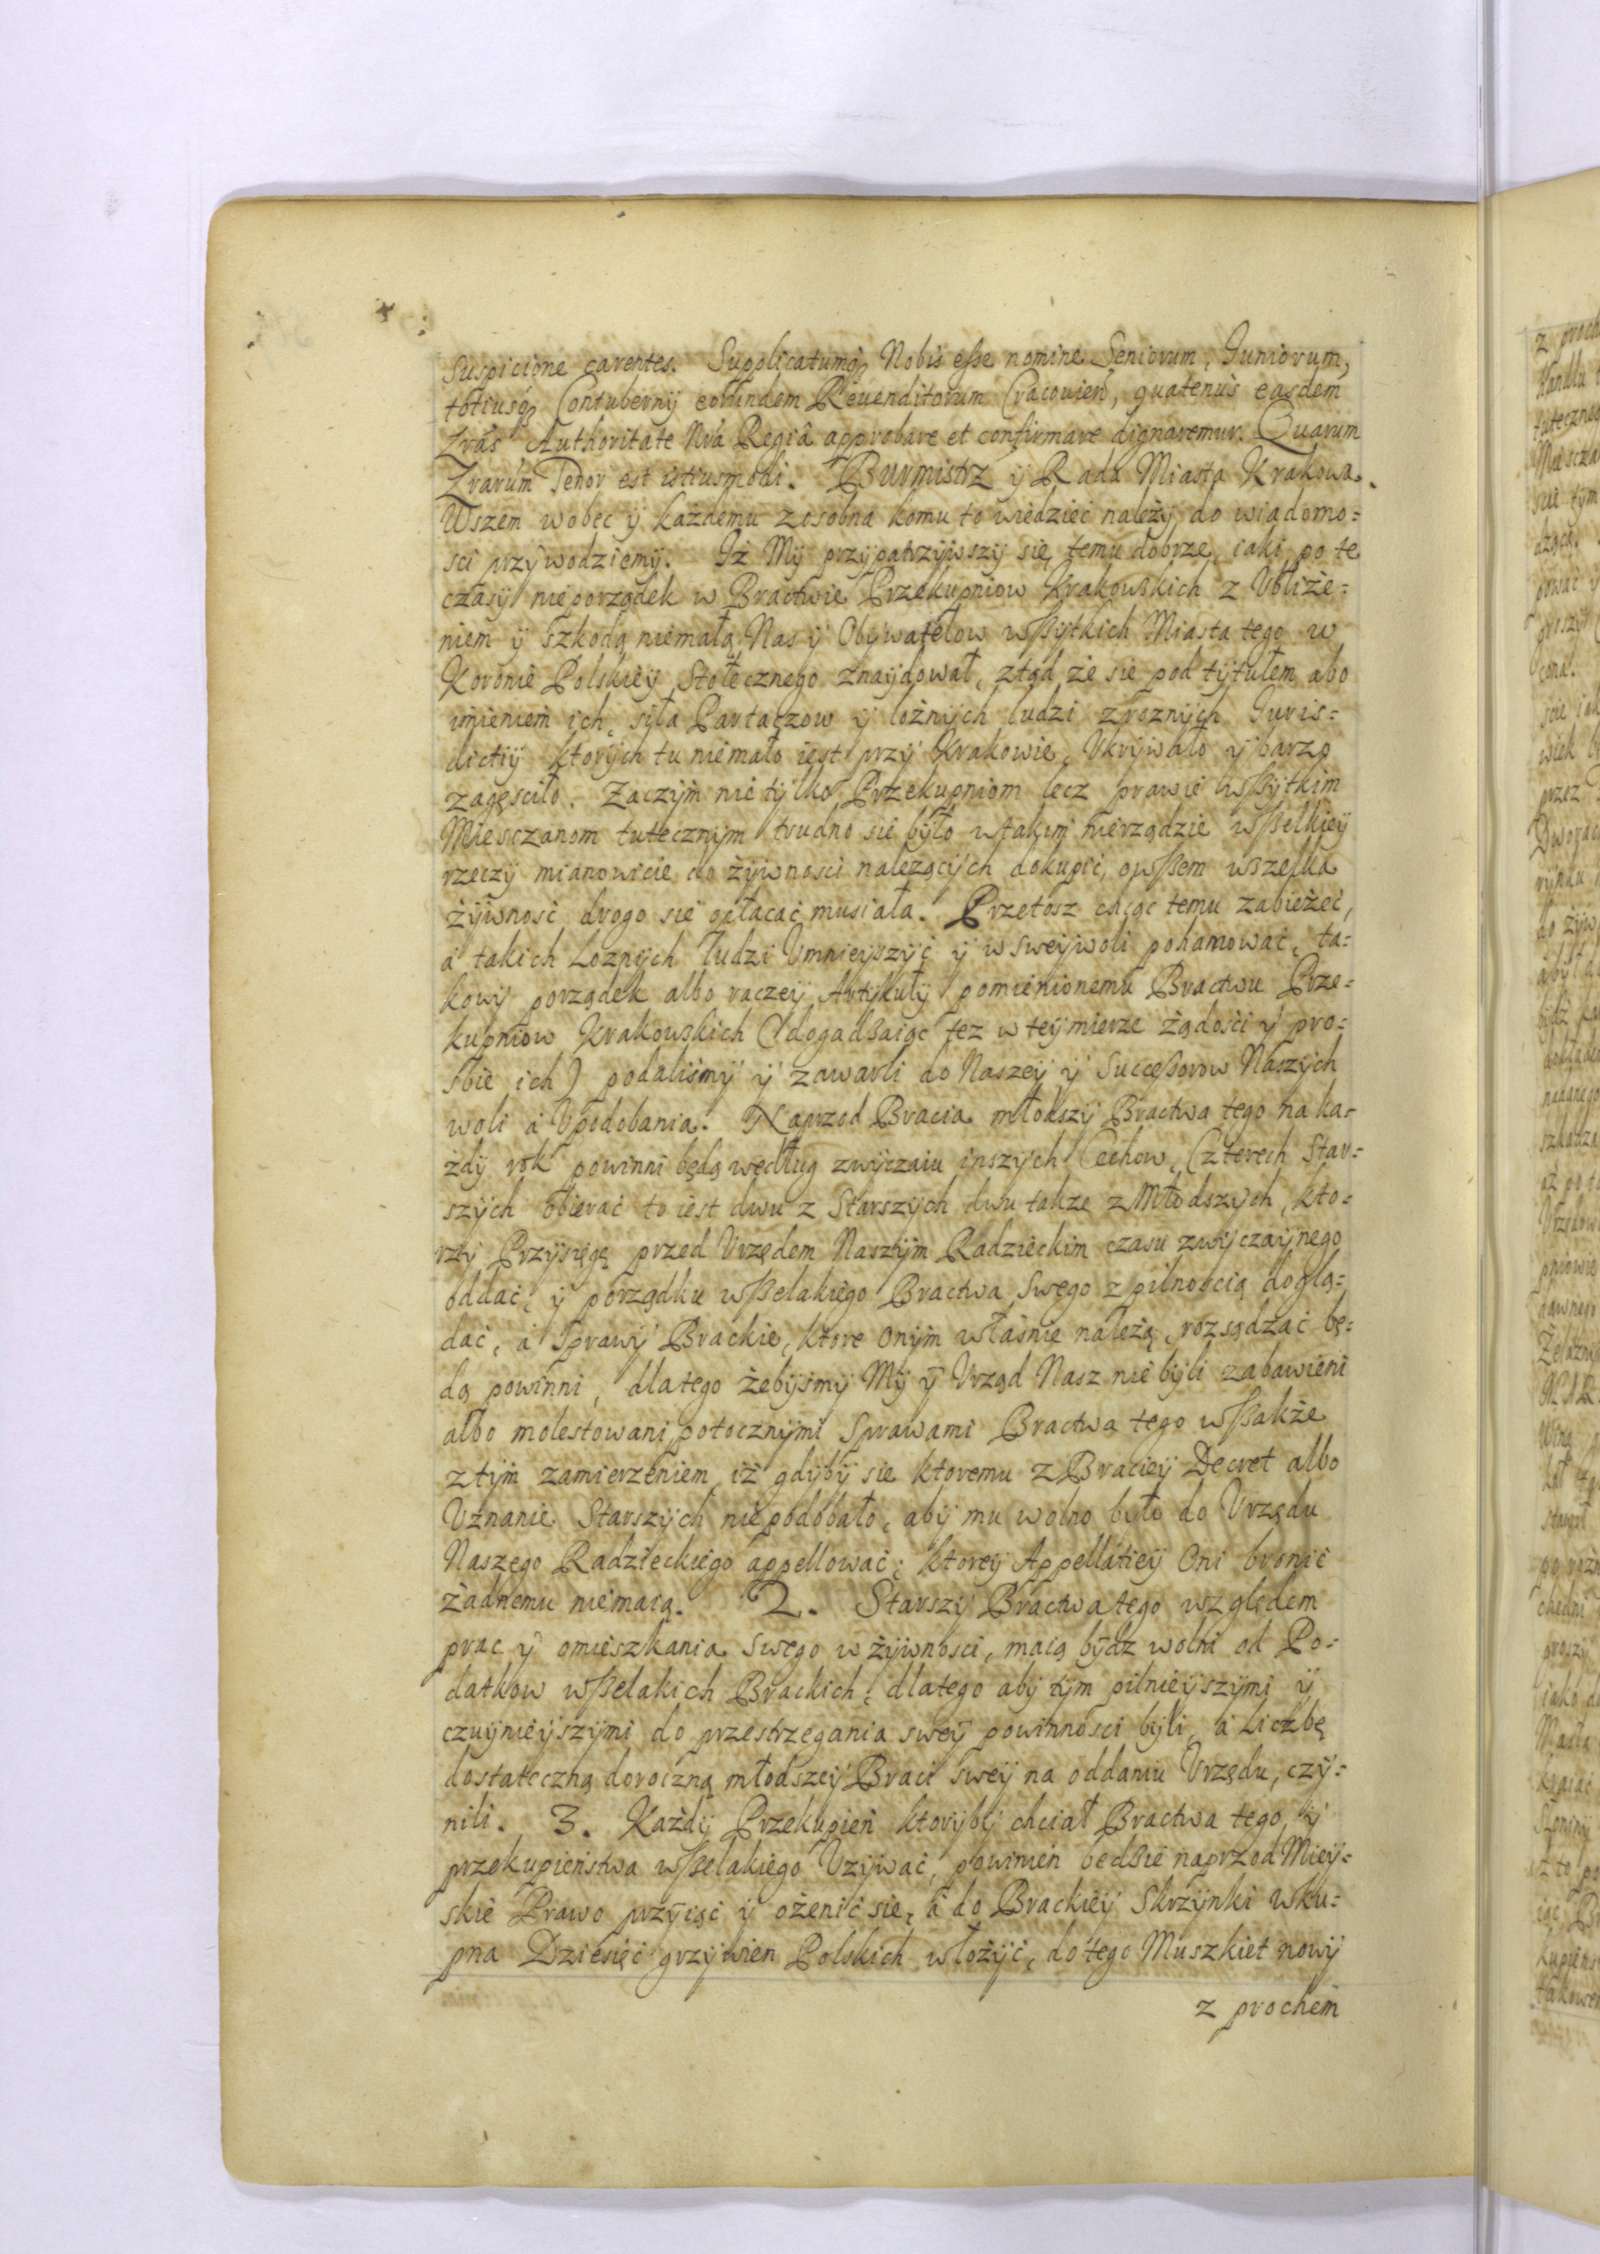 Suspicione carentes. Supplicatumq, Nobis esse nomine Seniorum, Juniorum,
totiusq, Contubernij eorundem Reuenditorum Cracouien, quatenus easdem
Lras Authoritate Nra Regiâ approbare et confirmare dignaremur. Quarum
Lrarum Tenor est istiusmodi. Burmistrz ÿ Rada Miasta Krakowa.
Wszem wobec ÿ każdemu zosobna komu to wiedzieć należÿ do wiadomo=
sci przÿwodziemÿ. Iż Mÿ przÿpatrzÿwszÿ się temu dobrze, iaki po te
czasÿ nieporządek w Bractwie Przekupniow Krakowskich z Vbliże=
niem ÿ szkodą niemałą Nas ÿ Obÿwatelow wßÿtkich Miasta tego w
Koronie Polskieÿ Stołecznego znaÿdował, ztąd że sie pod tÿtułem abo
imieniem ich, siła Partaczow ÿ lożnÿch ludzi zroznÿch Juris=
dictiÿ ktorÿch tu niemało iest przÿ Krakowie, Vkrÿwało ÿ barzo
zagęsciło. Zaczÿm nie tÿlko Przekupniom lecz prawie wßÿtkim
Miesczanom tutecznÿm trudno sie bÿło wtakim nierządzie wßelkieÿ
rzeczÿ mianowicie do żÿwnosci należącÿch dokupić, owßem wszelka
żÿwność drogo sie opłacać musiała. Przetosz chcąc temu zabieżeć,
á takich Loznÿch ludzi Vmnieyszÿć ÿ w sweÿwoli pohamować, ta=
kowÿ porządek albo raczeÿ Artÿkułÿ pomienionemu Bractwu Prze=
kupniow Krakowskich (dogadßaiąc tez w teÿ mierze żądości ÿ pro=
sbie ich) podalismÿ ÿ zawarli do Naszeÿ ÿ Successorow Naszÿch
woli á Vpodobania. Naprzod Bracia młodszÿ Bractwa tego na ka=
żdÿ rok powinni będą według zwÿczaiu inszÿch Cechow, Czterech Star=
szÿch obierać to iest dwu z Starszÿch dwu takze z Młodszÿch, kto=
rzÿ Przÿsięgę przed Vrzędem Naszÿm Radzieckim czasu zwÿczaÿnego
oddać, ÿ porządku wßelakiego Bractwa Swego z pilnoscią doglą=
dać, á Sprawÿ Brackie, ktore onÿm własnie należą, rozsądzać bę=
dą powinni, dlatego żebÿsmÿ Mÿ ÿ Vrząd Nasz nie bÿli zabawieni
albo molestowani potocznÿmi Sprawami Bractwa tego wßakże
z tÿm zamierzeniem, iż gdÿbÿ sie ktoremu z Bracieÿ Decret albo
Vznanie Starszÿch niepodobało, abÿ mu wolno bÿło do Vrzędu
Naszego Radzieckiego appellować; ktoreÿ Appellatieÿ Oni bronić
żadnemu niemaią. 2. Starszÿ Bractwa tego względem
prac ÿ omieszkania swego w żÿwnosci, maią bÿdz wolni od Po=
datkow wßelakich Brackich; dlatego abÿ tÿm pilnieÿszÿmi ÿ
czuÿnieÿszÿmi do przestrzegania sweÿ powinnosci bÿli, á Liczbę
dostateczną doroczną młodszeÿ Braci sweÿ na oddaniu Vrzędu, czÿ=
nili. 3. Każdÿ Przekupień ktorÿbÿ chciał Bractwa tego, ÿ
przekupieństwa wßelakiego Vzÿwać, powinien będßie naprzod Mieÿ=
skie Prawo przÿiąć ÿ ożenić sie, á do Brackieÿ Skrzÿnki wku=
pna Dziesięć grzÿwien Polskich włożÿć, do tego Muszkiet nowÿ
z prochem